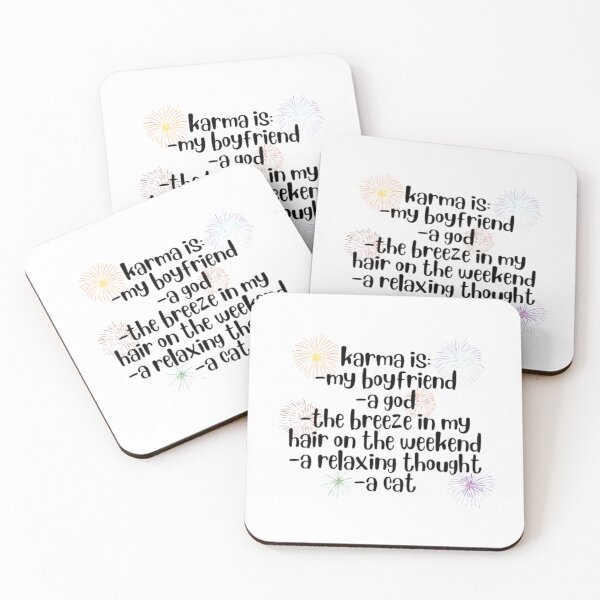 karma is:
-my boyfriend
-a god
-the in my
thought
karma is:
-my boyfriend
-a god
-the breeze in my
hair on the weekend
-a relaxing thought
karma is:
-my boyfriend
-a god
-the breeze in my
hair on the weekend
-a relaxing
-a cat
karma is:
-my boyfriend
-a god
-the breeze in my
hair on the weekend
-a relaxing thought
-a cat